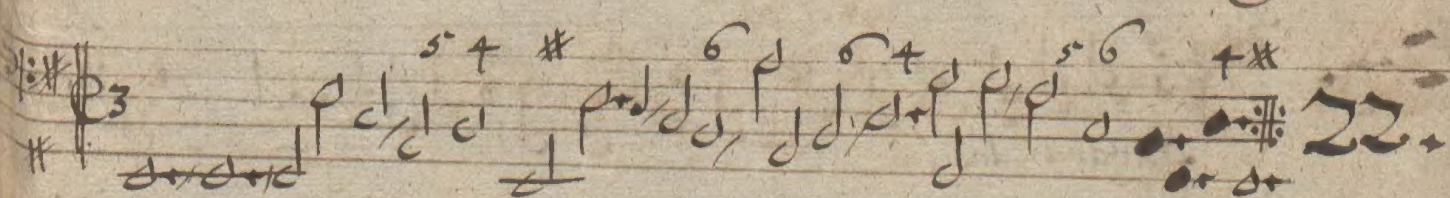 5 4 # 6 6 4 5 6 4 #
3 22.